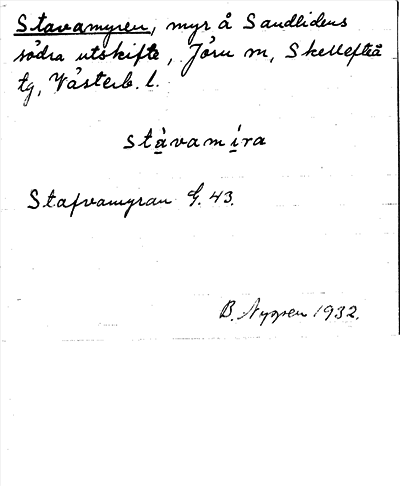 Stavamyren, myr å Sandlidens
södra utskifte, Jörn sn, Skellefteå
tg, Västerb. l.
stàvamíra
Stafvamyran G. 43.
B. Nygren 1932.